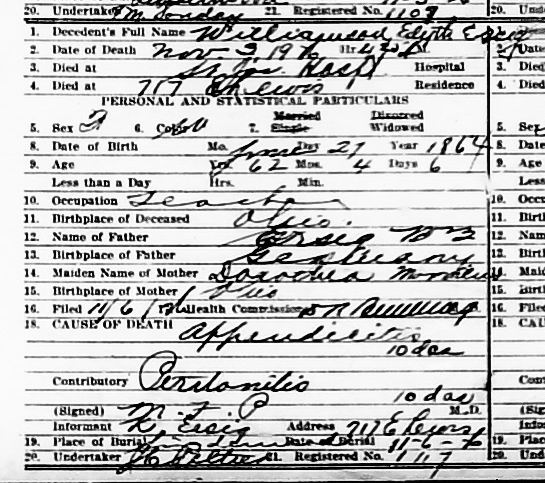 20. Undertaker 21. Registered No. 1108 20. Und
1. Decedent's Full Name Williamson Edyth E 1.
2. Date of Death Nov 3, 19 Hr 4 M. 2. Date
3. Died at St Jos. Hosp Hospital 3. Died
4. Died at 717 E Lewis Residence 4. Died
PERSONAL AND STATISTICAL PARTICULARS
5. Sex F 6. Color W 7. Married Single Divorced Widowed 5. Sex
8. Date of Birth Mo. June Day 27 Year 1864 8. Date
9. Age Yrs. 62 Mos. 4 Days 6 9. Age
Less than a Day Hrs. Min. Less
10. Occupation Teacher 10. Occu
11. Birthplace of Deceased Ohio. 11. Birt
12. Name of Father Ersig 12. Nam
13. Birthplace of Father Germany 13. Birt
14. Maiden Name of Mother Dorothea 14. Maid
15. Birthplace of Mother Ohio 15. Birt
16. Filed 11/6/ Health Commissioner 16. Filed
18. CAUSE OF DEATH Appendicitis 18. CAU
10 das
Contributory Peritonitis Cont
10 das
(Signed) M. F. P M.D. (Sig
Informant Ersig Address 717 E Lewis Info
19. Place of Burial Date of Burial 11-6- 19. Plac
20. Undertaker 21. Registered No. 1117 20. Und